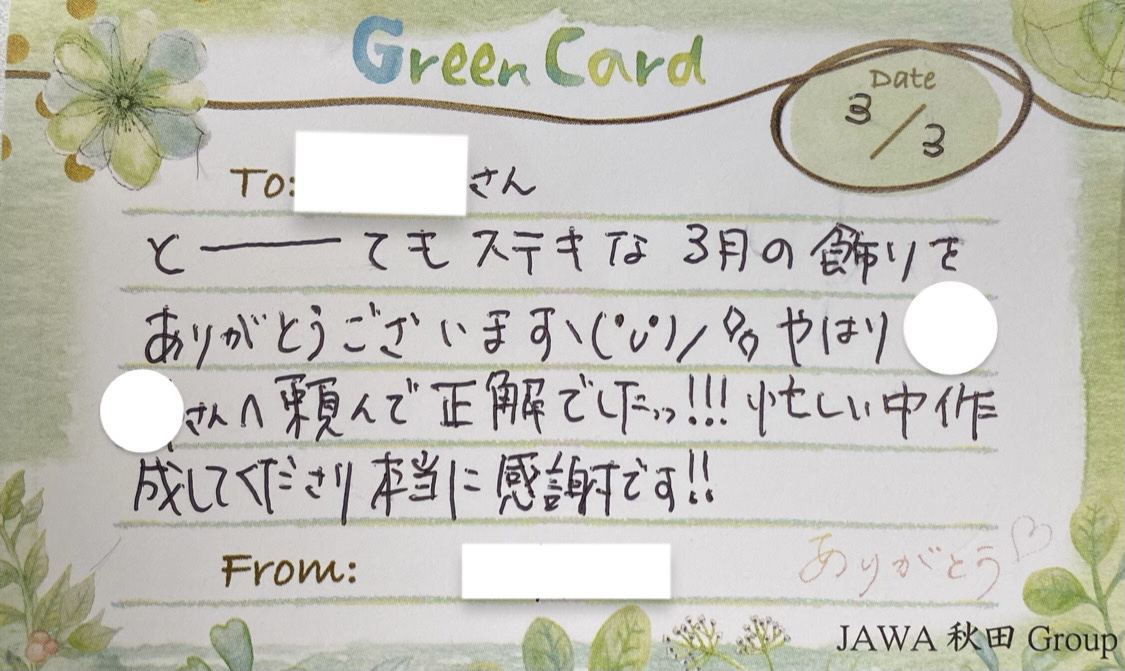 Green Card
Date
3/3
To: さん
と―――てもステキな3月の飾りを
ありがとうございますヽ(•∪•)ノ◇◇ やはり
さんへ頼んで正解でしたッッ!!! 忙しい中作
成してくださり本当に感謝です!!
From:
ありがとう♡
JAWA 秋田 Group